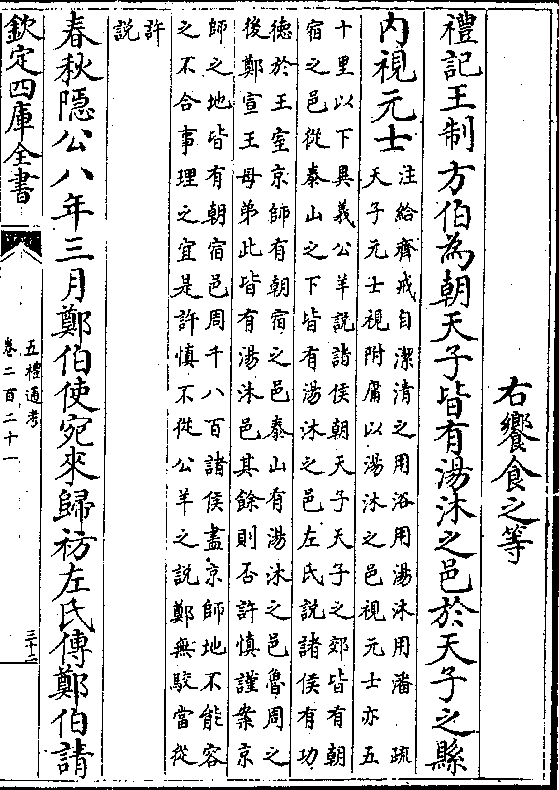 右饗食之等
禮記王制方伯為朝天子皆有湯沐之邑於天子之縣
内視元士
注給齊戒自潔清之用浴用湯沐用潘 疏
天子元士視附庸以湯沐之邑視元士亦五
十里以下異義公羊說諸侯朝天子天子之郊皆有朝
宿之邑從泰山之下皆有湯沐之邑左氏說諸侯有功
德於王室京師有朝宿之邑泰山有湯沐之邑魯周之
後鄭宣王母弟此皆有湯沐邑其餘則否許慎謹案京
師之地皆有朝宿邑周千八百諸侯盡京師地不能容
之不合事理之宜是許慎不從公羊之説鄭無駮當從
許
説
春秋隱公八年三月鄭伯使宛來歸祊左氏傳鄭伯請
欽定四庫全書
五禮通考
卷二百二十一
三十二